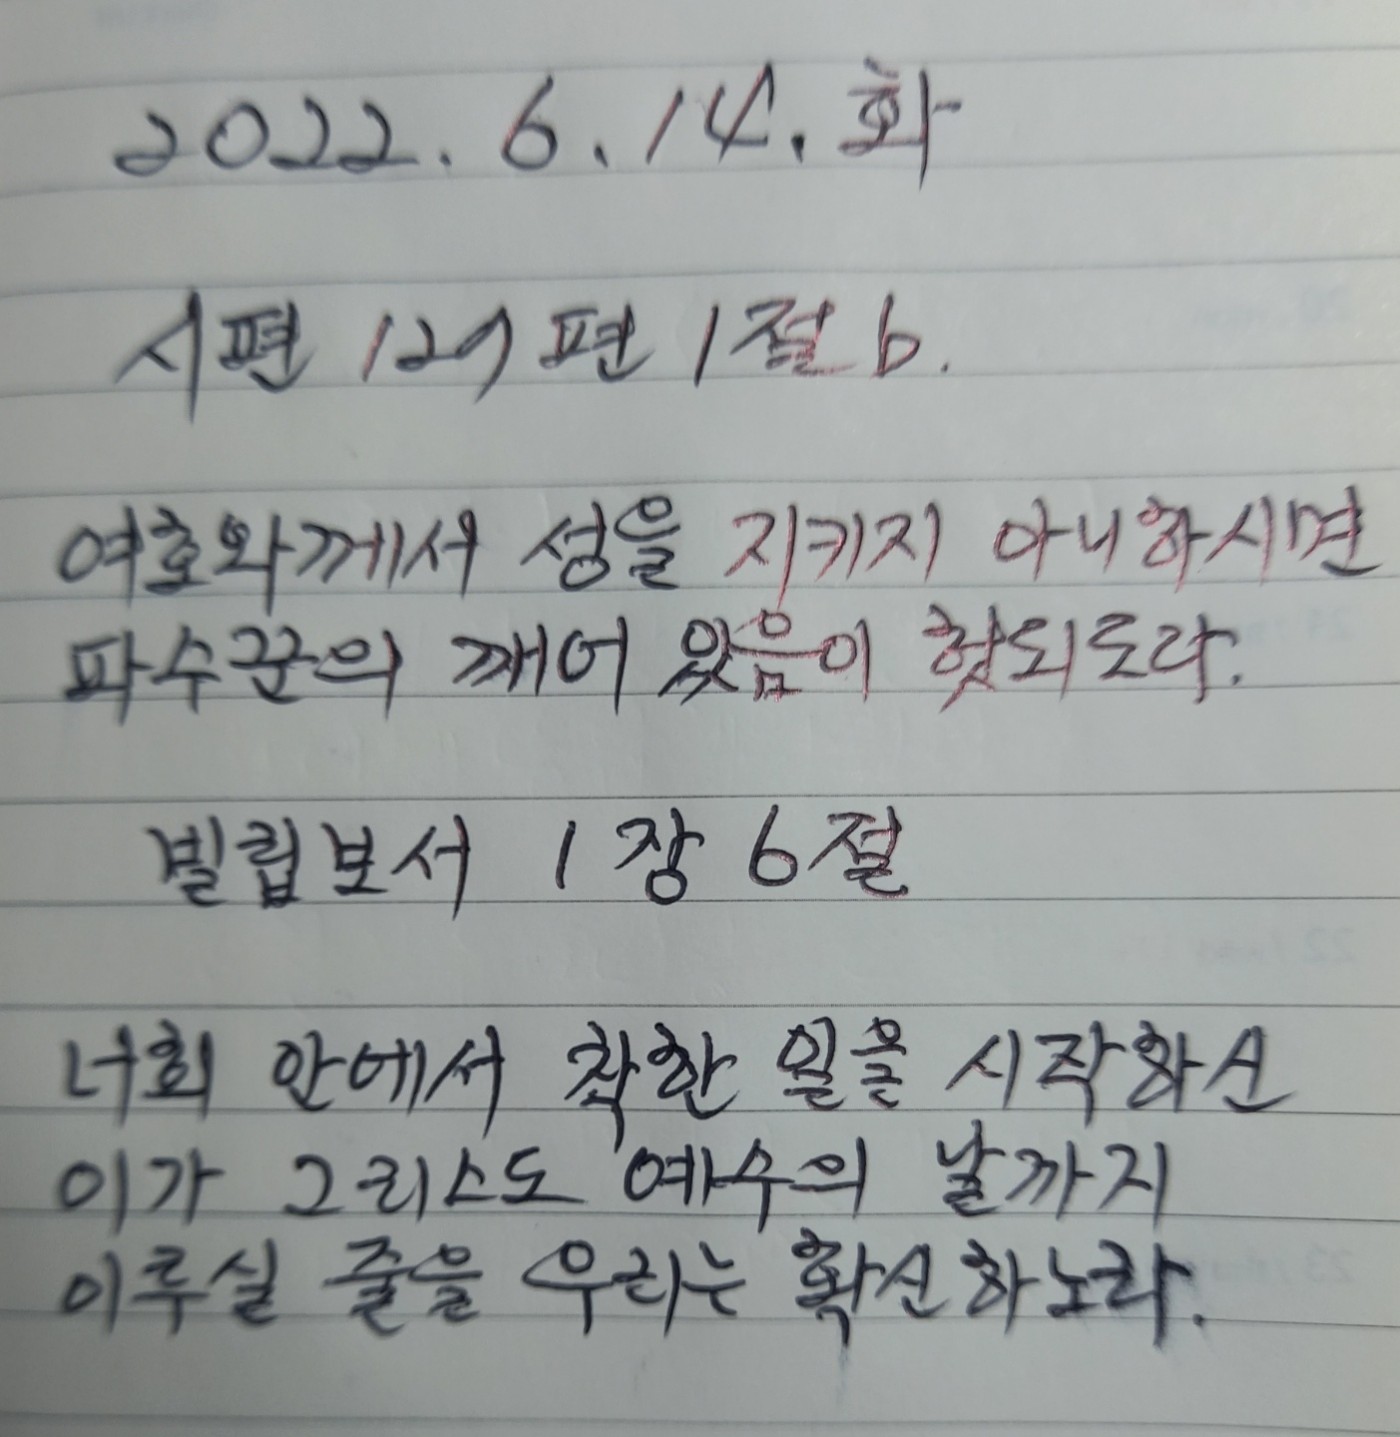 2022. 6. 14. 화
시편 127편 1절 b.
여호와께서 성을 지키지 아니하시면
파수꾼의 깨어 있음이 헛되도다.
빌립보서 1장 6절
너희 안에서 착한 일을 시작하신
이가 그리스도 예수의 날까지
이루실 줄을 우리는 확신하노라.